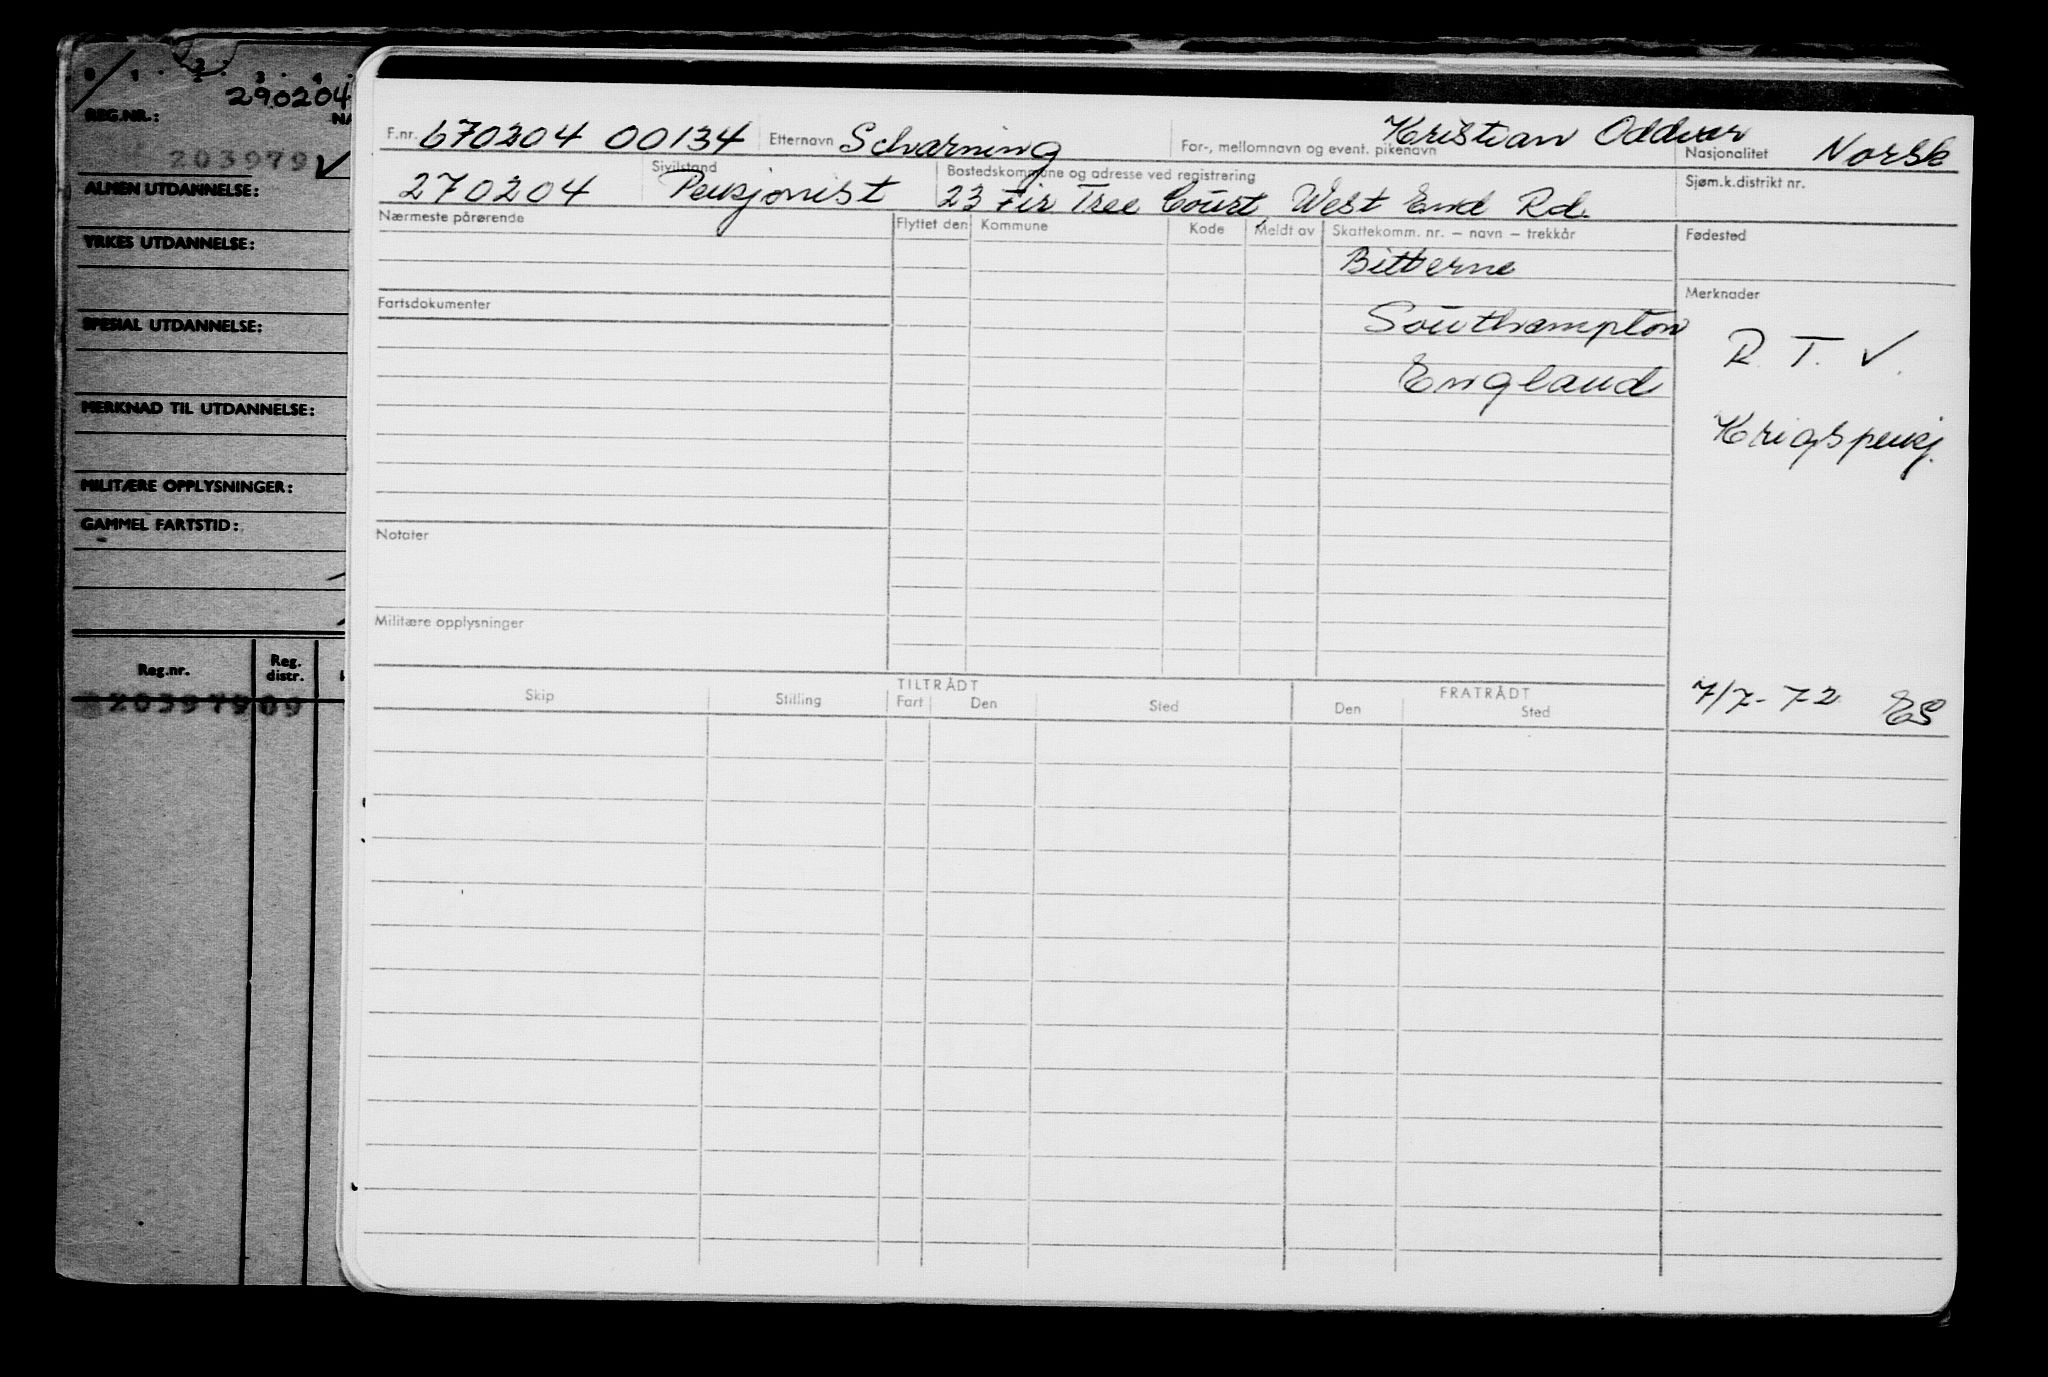 0 1 2 3 4
290204
REG.NR.:
203979 ✓
ALMEN UTDANNELSE:
YRKES UTDANNELSE:
SPESIAL UTDANNELSE:
MERKNAD TIL UTDANNELSE:
MILITÆRE OPPLYSNINGER:
GAMMEL FARTSTID:
Reg.nr. Reg. distr.
203979 09
F.nr. 670204 00134 Etternavn Scharning For-, mellomnavn og event. pikenavn Kristian Oddvar Nasjonalitet Norsk
270204 Sivilstand Pensjonist Bostedskommune og adresse ved registrering 23 Fir Tree Court, West End Rd. Sjøm.k.distrikt nr.
Nærmeste pårørende Flyttet den Kommune Kode Meldt av Skattekomm. nr. – navn – trekkår Fødested
Bitterne
Fartsdokumenter Southampton Merknader
England R.T.V.
Krigspensj.
Notater
Militære opplysninger
7/7-72 ES
TILTRÅDT FRATRÅDT
Skip Stilling Fart Den Sted Den Sted